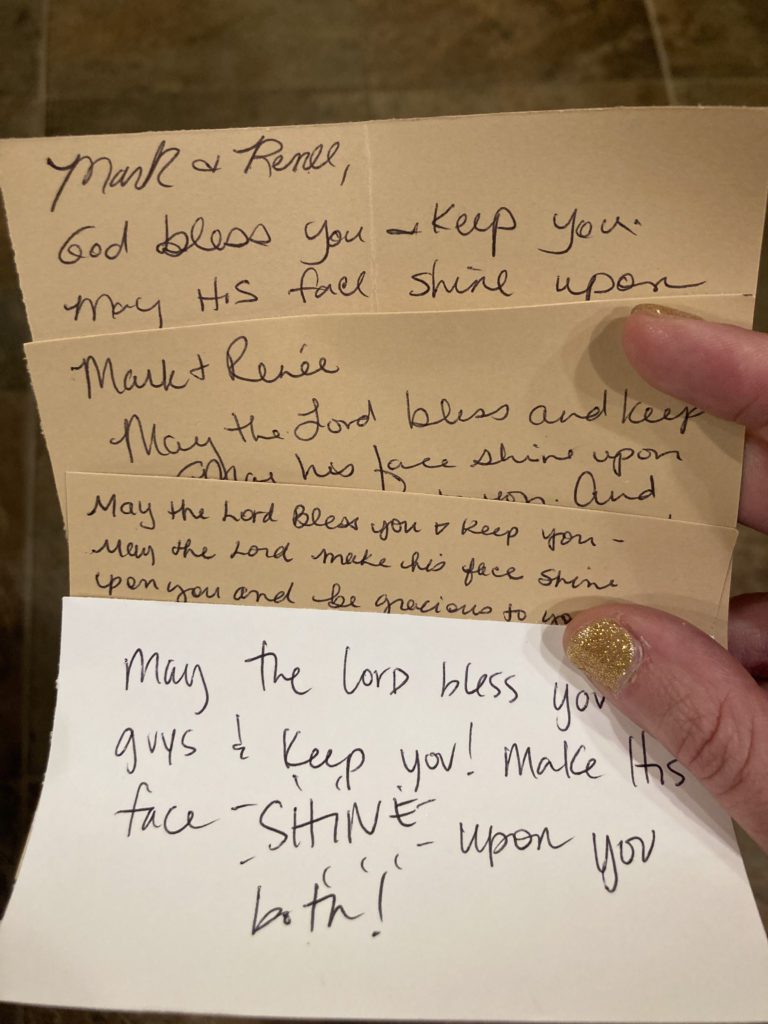 Mark & Renee,
God bless you & Keep you.
May His face shine upon
Mark & Renée
May the Lord bless and keep
May his face shine upon
you. And
May the Lord Bless you & Keep you -
May the Lord make his face shine
upon you and be gracious to
May the Lord bless you
guys & Keep you! Make His
face SHINE upon you
both!